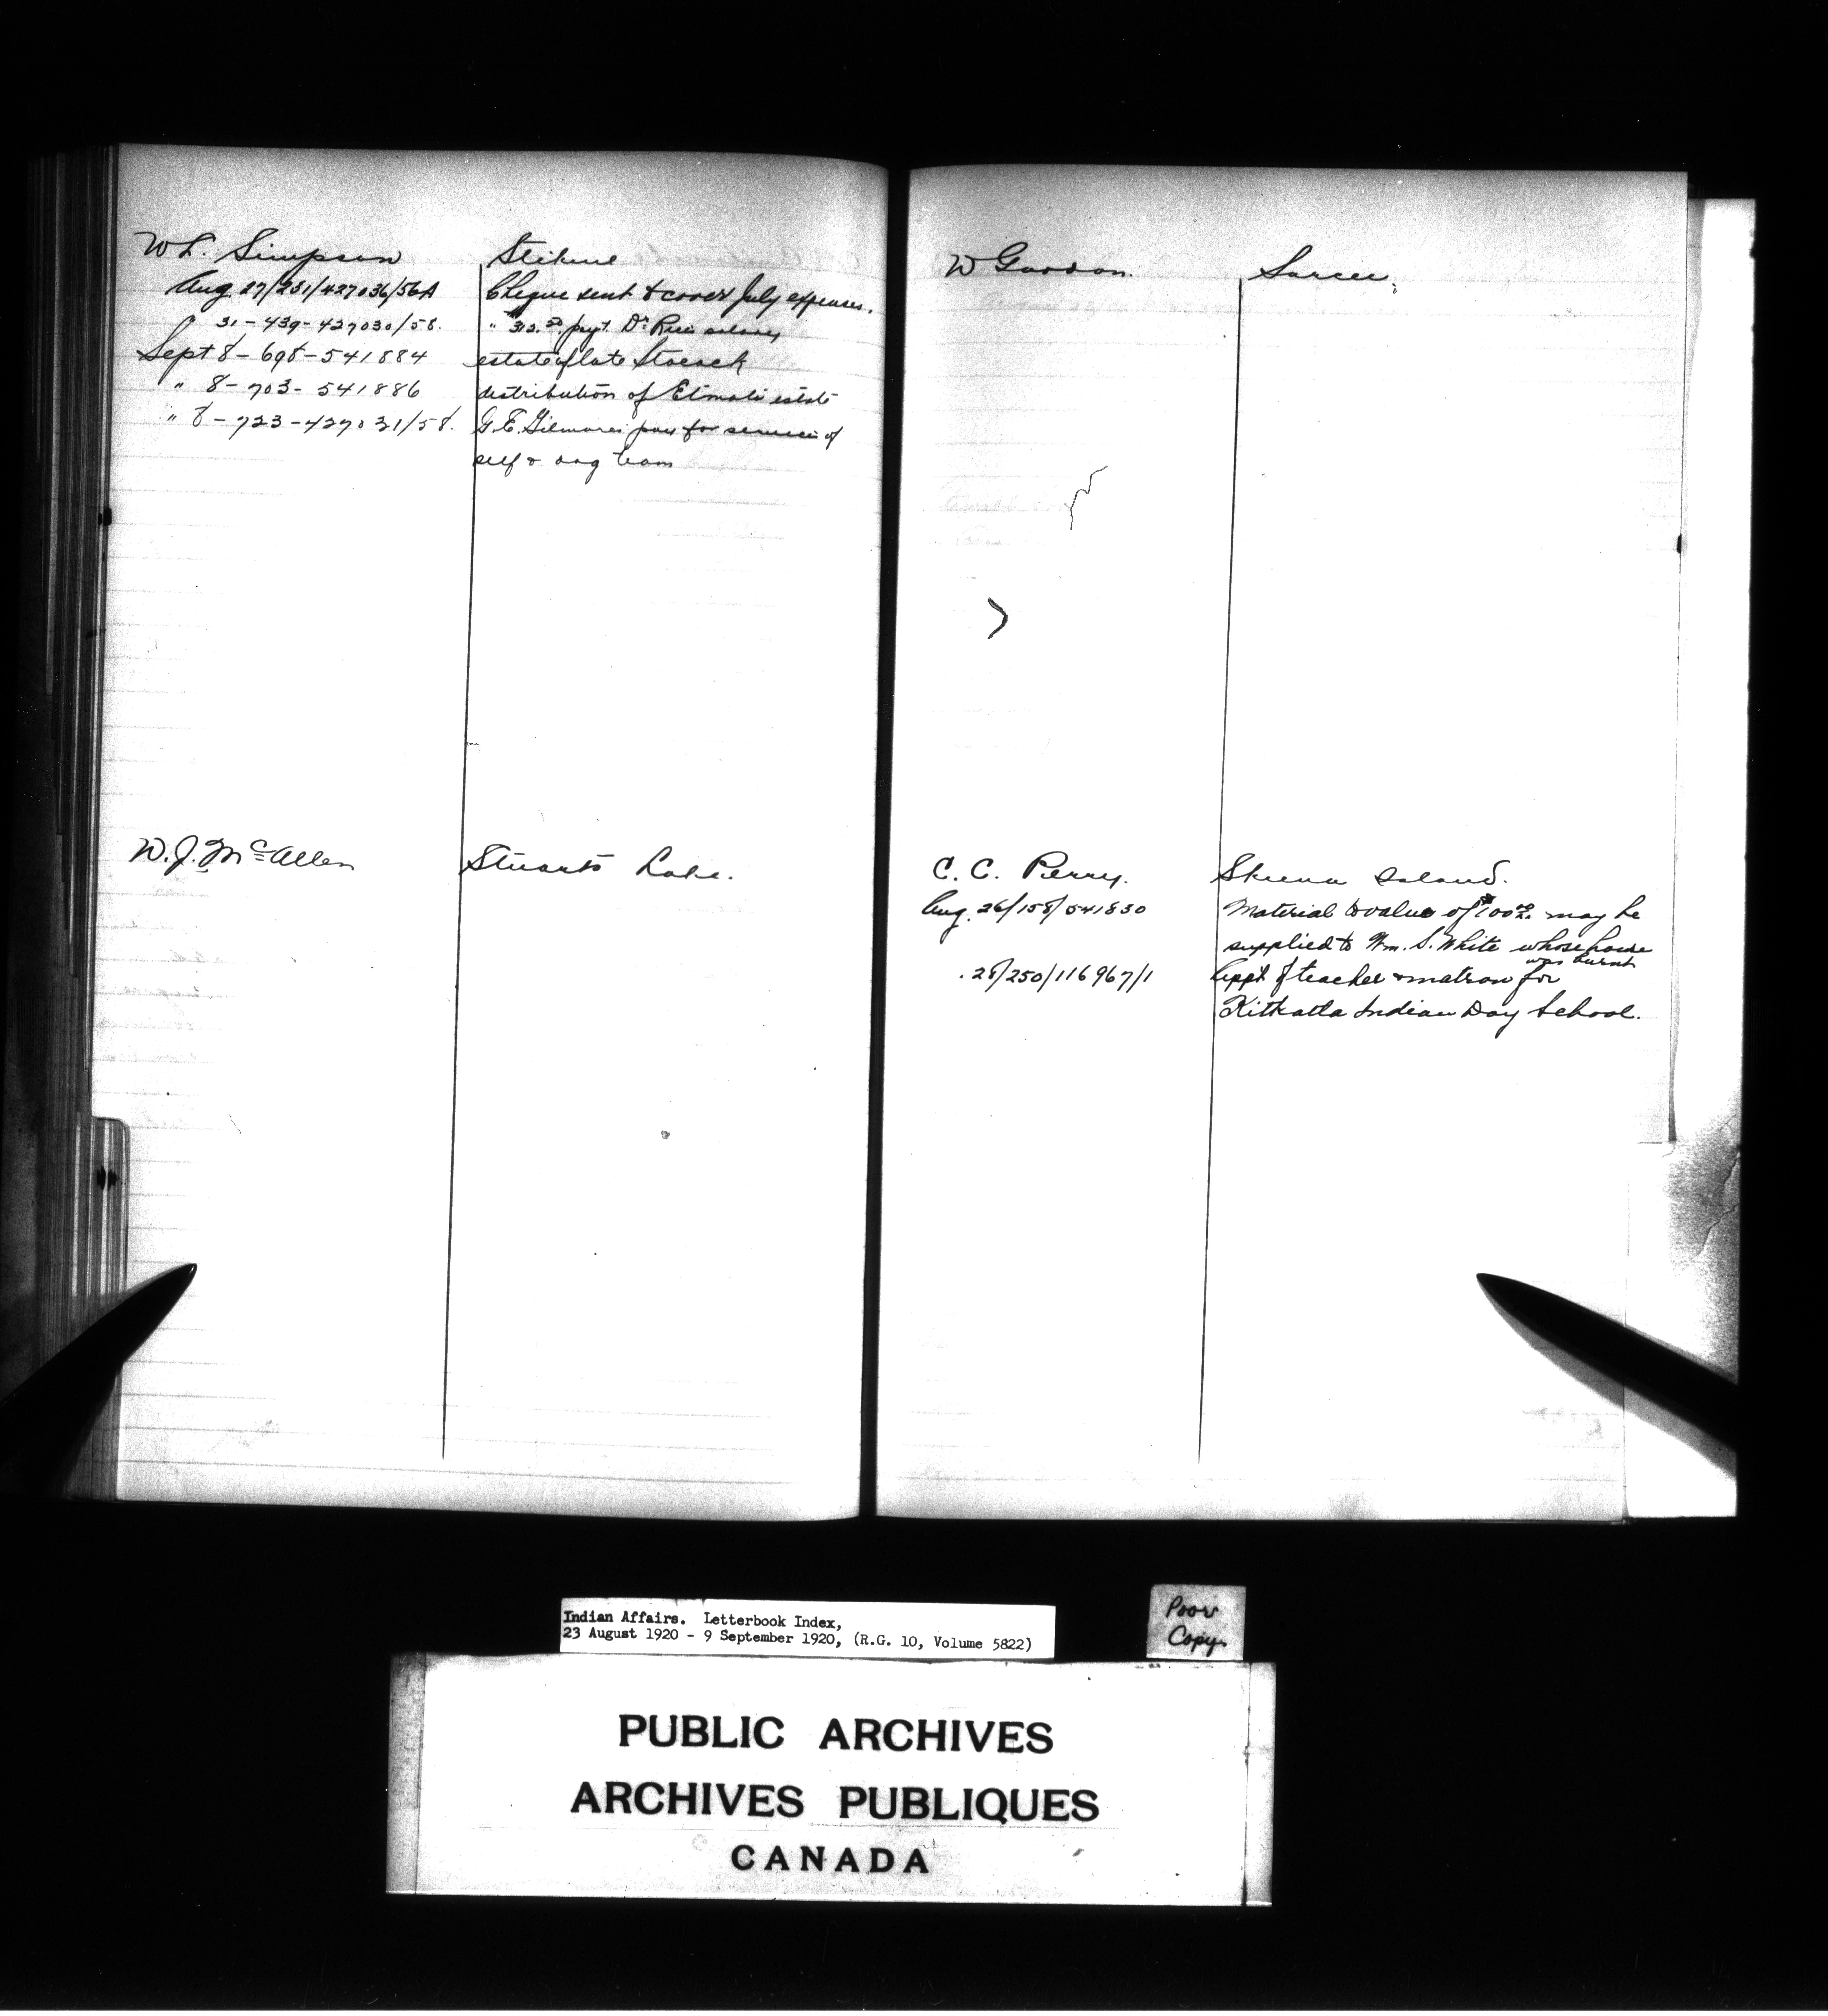 W S. Simpson Stikine
Aug. 27/231/427036/56A Cheque sent to cover July expenses.
31-439-427030/58. " 312.50 payt. Dr salary
Sept 8-698-541884 estate of late
" 8-703-541886 distribution of estate
" 8-723-427031/58. G.E. Gilmore's pay for services of
self & dog team
W.J. McAllen Stuarts Lake.
W Gordon. Sarcee.
C. C. Perry. Skeena Island.
Aug. 26/158/541830 Material to value of $100.00 may be
supplied to Wm. S. White whose house
was burnt
. 28/250/116967/1 Appt. of teacher & matron for
Kitkatla Indian Day School.
Indian Affairs. Letterbook Index,
23 August 1920 - 9 September 1920, (R.G. 10, Volume 5822)
Poor
Copy
PUBLIC ARCHIVES
ARCHIVES PUBLIQUES
CANADA